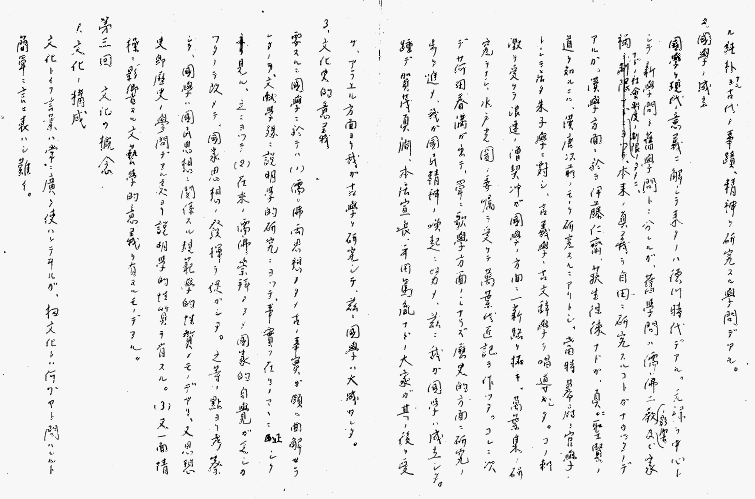 ル純朴ナル古代ノ事蹟、精神ヲ研究スル學問デアル。
2、國學ノ成立
國學ヲ現代意義ニ解シテ来タノハ徳川時代デアル。元禄ヲ中心ト
シテ新學問ト舊學問トニ分レルガ、舊學問ハ儒、佛二教及ビ家
ノ社會制度ノ制限ニヨッテ本来ノ真義ヲ自由ニ研究スルコトガナカッタノデ
アルガ、漢學方面ニ於テ伊藤仁齋、荻生徂徠ナドガ、真ニ聖賢ノ
道ヲ知ルニハ、漢唐以前ノモノヲ研究スルニアリトシ、當時幕府ノ官學
トシテ居タ朱子學ニ對シ、古義學、古文辭學ヲ唱導シタ。コノ刺
激ヲ受ケテ浪速ノ僧契沖ガ國學ノ方面ニ一新路ヲ拓キ、萬葉集ノ研
究ヲナシ、水戸光圀ノ委嘱ヲ受ケテ萬葉代匠記ヲ作ッタ。コレニ次
デ荷田春満ガ出デ、單ニ歌學方面ノミナラズ歴史的方面ニ研究ノ
歩ヲ進メ、我ガ國民精神ノ喚起ニ努力シ、茲ニ我ガ國學ハ成立シタ。
踵デ賀茂真淵、本居宣長、平田篤胤ナド大家ガ其ノ後ヲ受
ケ、アラユル方面ヨリ我ガ古學ヲ研究シテ、茲ニ國學ハ大成シタ。
3、文化史的意義
要スルニ國學ニ於テハ(1)儒、佛両思想ノタメ古ノ事實ガ頗ル曲解セラ
レタノヲ文献學的ニ説明學的研究ニヨッテ、事實ヲ在リノマヽニ
見ル。(2)在来ノ儒佛崇拜ノタメ國家的自覺ガ乏シカ
ッタノヲ改メテ、國家思想ノ發揮ヲ促ガシタ。之等ノ點ヨリ考察
シテ、國學ハ國民思想ニ関係スル規範學的性質ノモノデアリ、又思想
史即歴史ノ學問デアル点ヨリ説明學的性質ヲ有スル。(3)又一面情
操ニ影響スル文藝學的意義ヲ有スルモノデアル。
第三回 文化ノ概念
1、文化ノ構成
文化トイフ言葉ハ常ニ廣ク使ハレテヰルガ、扨文化トハ何ゾヤト問ハレルト
簡單ニ言ヒ表ハシ難イ。